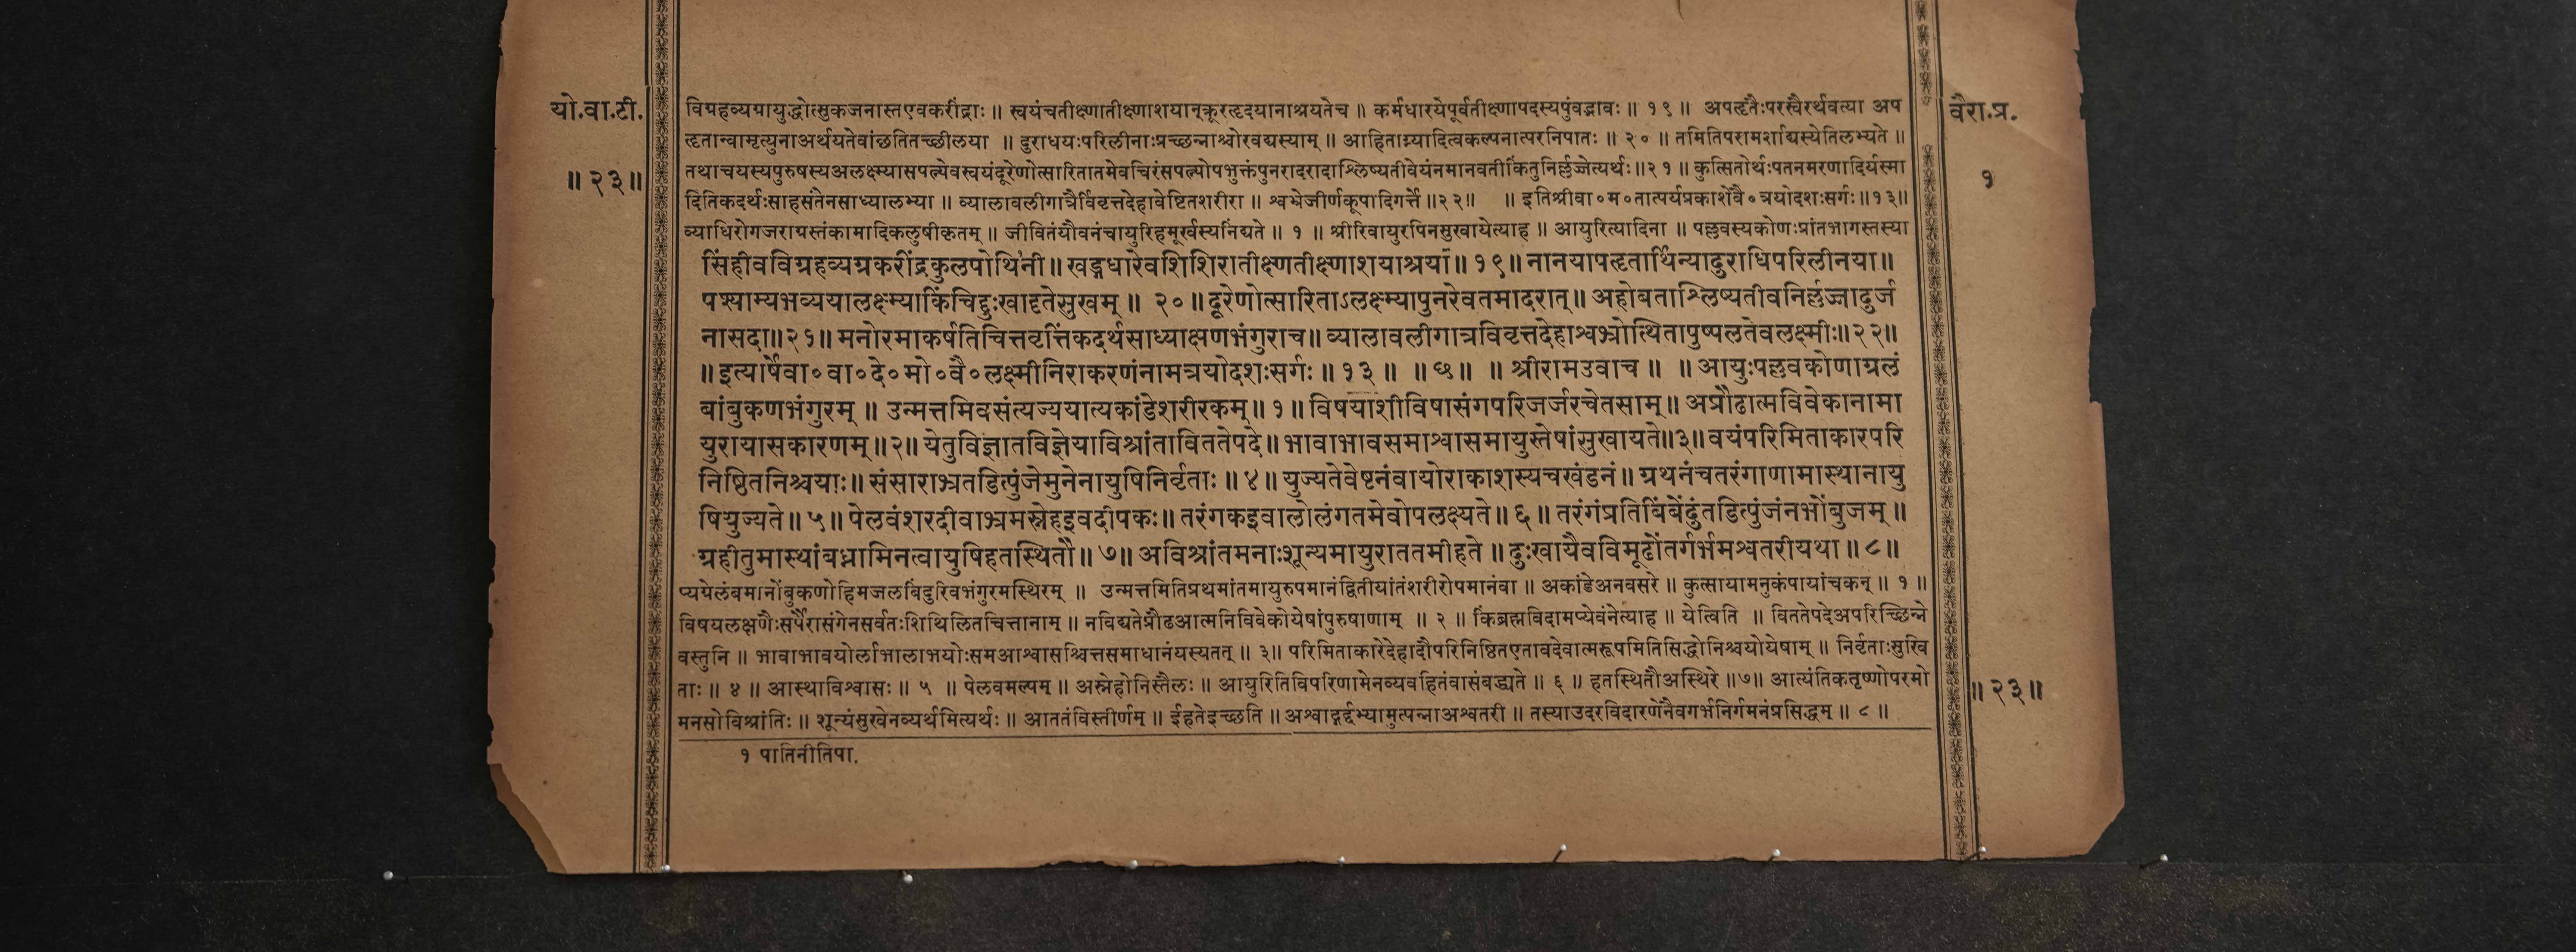 यो.वा.टी.
॥ २३॥
वैरा.प्र.
१
विग्रहव्यग्रायुद्धोत्सुकजनास्तएवकरींद्राः ॥ स्वयंचतीक्ष्णातीक्ष्णाशयान्क्रूरहृदयानाश्रयतेच ॥ कर्मधारयेपूर्वतीक्ष्णापदस्यपुंवद्भावः ॥ १९ ॥ अपहृतैःपरस्वैरर्थवत्या अप
हृतान्वामृत्युनाअर्थयतेवांछतितच्छीलया ॥ दुराधयःपरिलीनाःप्रच्छन्नाश्चोरवद्यस्याम् ॥ आहिताग्न्यादित्वकल्पनात्परनिपातः ॥ २० ॥ तमितिपरामर्शाद्यस्येतिलभ्यते ॥
तथाचयस्यपुरुषस्यअलक्ष्म्यासपत्न्येवस्वयंदूरेणोत्सारितातमेवचिरंसपत्न्योपभुक्तंपुनरादरादाश्लिष्यतीवेयंनमानवतीकिंतुनिर्लज्जेत्यर्थः॥२१॥ कुत्सितोर्थःपतनमरणादिर्यस्मा
दितिकदर्थःसाहसंतेनसाध्यालभ्या ॥ व्यालावलीगात्रैर्विवृत्तदेहावेष्टितशरीरा ॥ श्वभ्रेजीर्णकूपादिगर्त्ते॥२२॥ ॥ इतिश्रीवा०म०तात्पर्यप्रकाशेवै० त्रयोदशःसर्गः॥१३॥
व्याधिरोगजराग्रस्तंकामादिकलुषीकृतम् ॥ जीवितंयौवनंचायुरिहमूर्खस्यनिंद्यते ॥ १ ॥ श्रीरिवायुरपिनसुखायेत्याह ॥ आयुरित्यादिना ॥ पल्लवस्यकोणःप्रांतभागस्तस्या
सिंहीवविग्रहव्यग्रकरींद्रकुलपोथिनी॥ खड्गधारेवशिशिरातीक्ष्णतीक्ष्णाशयाश्रया॥ १९॥ नानयापहृतार्थिन्यादुराधिपरिलीनया॥
पश्याम्यभव्ययालक्ष्म्याकिंचिद्दुःखादृतेसुखम् ॥ २० ॥ दूरेणोत्सारिताऽलक्ष्म्यापुनरेवतमादरात्॥ अहोबताश्लिष्यतीवनिर्लज्जादुर्ज
नासदा॥२१॥ मनोरमाकर्षतिचित्तवृत्तिंकदर्थसाध्याक्षणभंगुराच॥ व्यालावलीगात्रविवृत्तदेहाश्वभ्रोत्थितापुष्पलतेवलक्ष्मीः॥२२॥
॥ इत्यार्षेवा० वा० दे० मो० वै० लक्ष्मीनिराकरणंनामत्रयोदशःसर्गः ॥ १३ ॥ ॥ छ॥ ॥ श्रीरामउवाच ॥ ॥ आयुःपल्लवकोणाग्रलं
बांबुकणभंगुरम् ॥ उन्मत्तमिवसंत्यज्ययात्यकांडेशरीरकम्॥ १॥ विषयाशीविषासंगपरिजर्जरचेतसाम्॥ अप्रौढात्मविवेकानामा
युरायासकारणम्॥२॥ येतुविज्ञातविज्ञेयाविश्रांताविततेपदे॥ भावाभावसमाश्वासमायुस्तेषांसुखायते॥३॥ वयंपरिमिताकारपरि
निष्ठितनिश्चयाः॥ संसाराभ्रतडित्पुंजेमुनेनायुषिनिर्वृताः ॥ ४॥ युज्यतेवेष्टनंवायोराकाशस्यचखंडनं॥ ग्रथनंचतरंगाणामास्थानायु
षियुज्यते॥ ५॥ पेलवंशरदीवाभ्रमस्नेहइवदीपकः॥ तरंगकइवालोलंगतमेवोपलक्ष्यते॥ ६॥ तरंगंप्रतिबिंबेंदुंतडित्पुंजंनभोंबुजम् ॥
ग्रहीतुमास्थांबध्नामिनत्वायुषिहतस्थितौ॥ ७॥ अविश्रांतमनाःशून्यमायुराततमीहते ॥ दुःखायैवविमूढोंतर्गर्भमश्वतरीयथा॥ ८॥
प्यग्रेलंबमानोंबुकणोहिमजलबिंदुरिवभंगुरमस्थिरम् ॥ उन्मत्तमितिप्रथमांतमायुरुपमानंद्वितीयांतंशरीरोपमानंवा ॥ अकांडेअनवसरे ॥ कुत्सायामनुकंपायांचकन् ॥ १ ॥
विषयलक्षणैःसर्पैरासंगेनसर्वतःशिथिलितचित्तानाम् ॥ नविद्यतेप्रौढआत्मनिविवेकोयेषांपुरुषाणाम् ॥ २ ॥ किंब्रह्मविदामप्येवंनेत्याह ॥ येत्विति ॥ विततेपदेअपरिच्छिन्ने
वस्तुनि ॥ भावाभावयोर्लाभालाभयोःसमआश्वासश्चित्तसमाधानंयस्यतत् ॥ ३॥ परिमिताकारेदेहादौपरिनिष्ठितएतावदेवात्मरूपमितिसिद्धोनिश्चयोयेषाम् ॥ निर्वृताःसुखि
ताः ॥ ४ ॥ आस्थाविश्वासः ॥ ५ ॥ पेलवमल्पम् ॥ अस्नेहोनिस्तैलः ॥ आयुरितिविपरिणामेनव्यवहितंवासंबद्ध्यते ॥ ६ ॥ हतस्थितौअस्थिरे ॥७॥ आत्यंतिकतृष्णोपरमो
मनसोविश्रांतिः ॥ शून्यंसुखेनव्यर्थमित्यर्थः ॥ आततंविस्तीर्णम् ॥ ईहतेइच्छति ॥ अश्वाद्गर्दभ्यामुत्पन्नाअश्वतरी ॥ तस्याउदरविदारणेनैवगर्भनिर्गमनंप्रसिद्धम् ॥ ८ ॥
॥ २३॥
१ पातिनीतिपा.